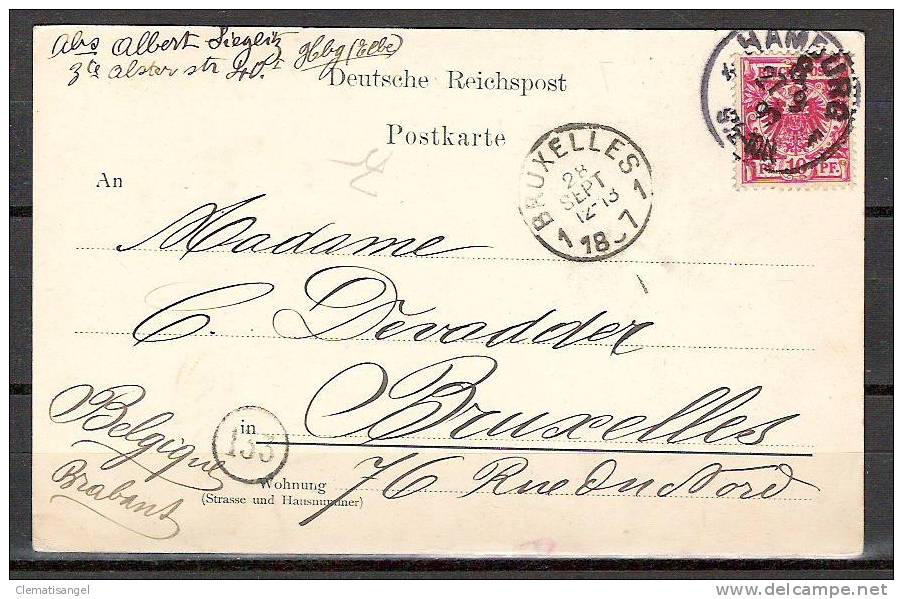 Abs Albert Sieglitz Hbg (Elbe)
3te Alsterstr
Deutsche Reichspost
Postkarte
HAMBURG
10 PF.
BRUXELLES
28
SEPT
12-13
1897
1 1
An
Madame
C. Devadder
in Bruxelles
133
Belgique
Brabant
Wohnung 76 Rue Du Nord
(Strasse und Hausnummer)
Clematisangel
www.delcampe.net